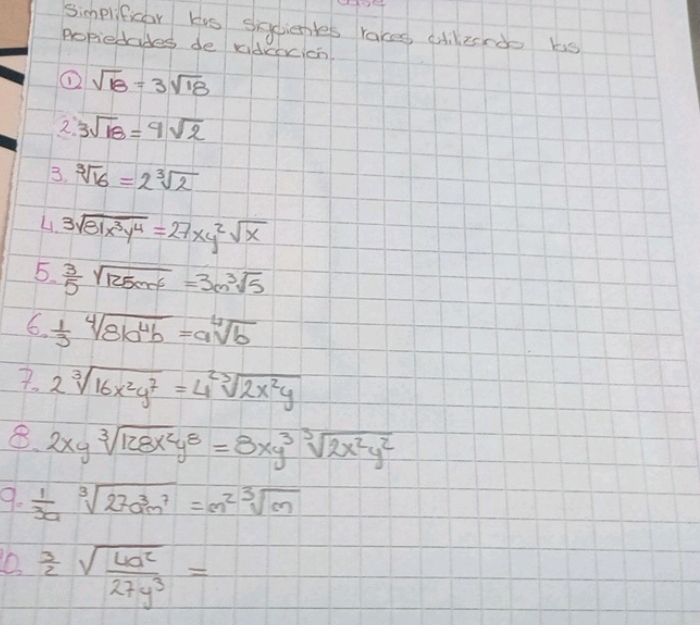 Simplificar las siguientes raices utilizando las
Propiedades de radicación.
① √18 = 3√18
2. 3√18 = 9√2
3. ∛16 = 2∛2
4. 3√81x³y⁴ = 27xy²√x
5. 3/5 √125m⁶ = 3m³√5
6. 1/3 ∜81a⁴b = a∜b
7. 2∛16x²y⁷ = 4²∛2x²y
8. 2xy ∛128x²y⁸ = 8xy³ ∛2x²y²
9. 1/3a ∛27a³m⁷ = m²∛m
10. 3/2 √4a²/27y³ =